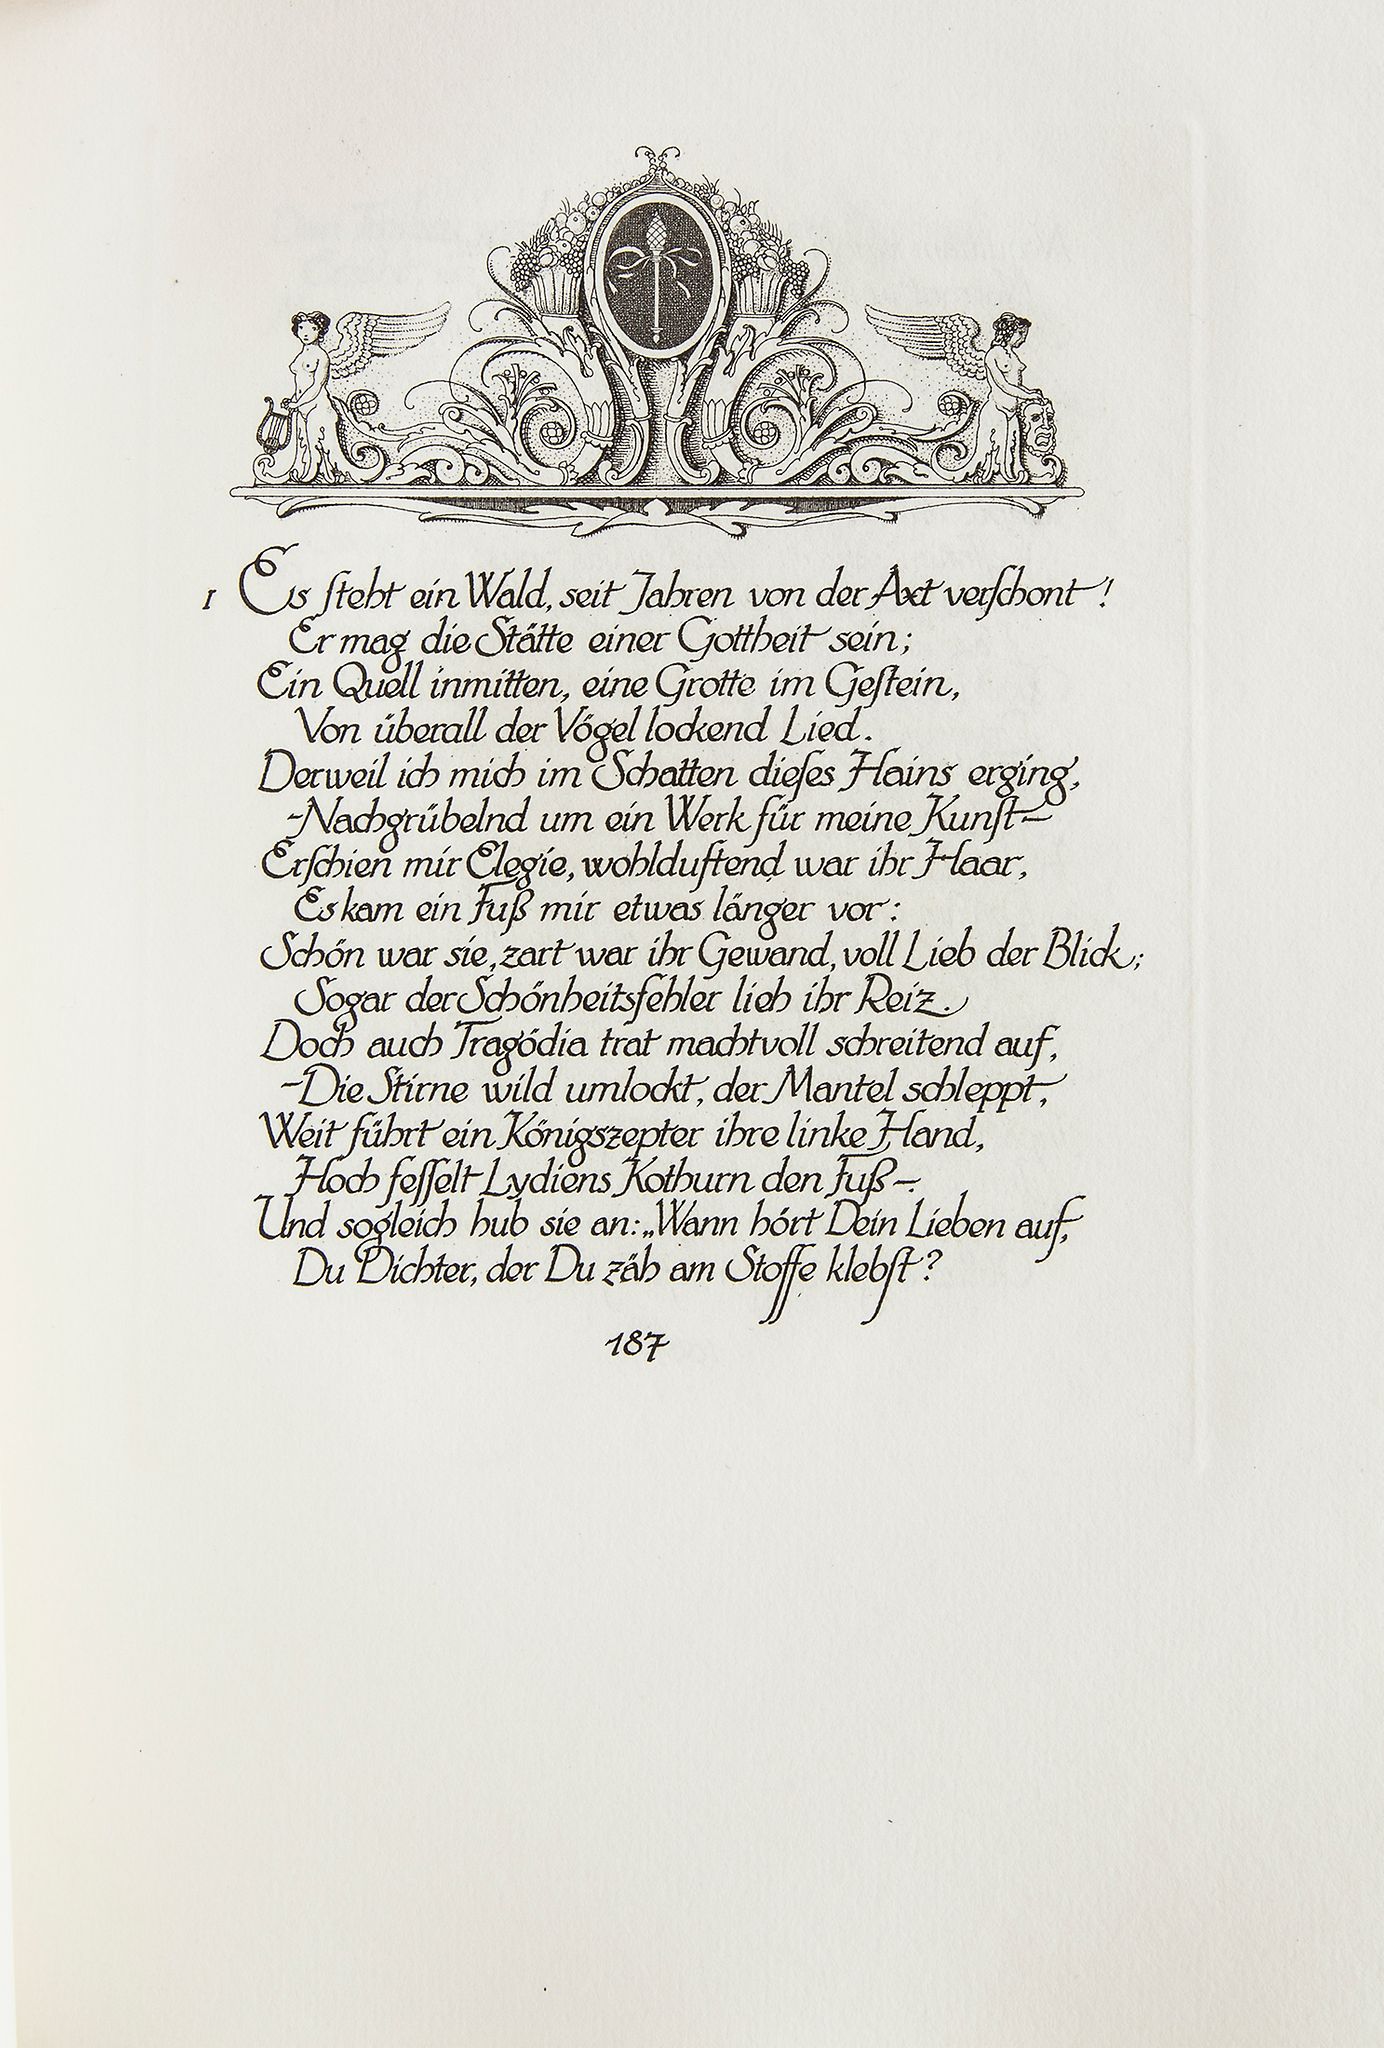 1 Es steht ein Wald, seit Jahren von der Axt verschont!
Er mag die Stätte einer Gottheit sein;
Ein Quell inmitten, eine Grotte im Gestein,
Von überall der Vögel lockend Lied.
Derweil ich mich im Schatten dieses Hains erging,
-Nachgrübelnd um ein Werk für meine Kunst-
Erschien mir Elegie, wohlduftend war ihr Haar,
Es kam ein Fuß mir etwas länger vor:
Schön war sie, zart war ihr Gewand, voll Lieb der Blick;
Sogar der Schönheitsfehler lieh ihr Reiz.
Doch auch Tragödia trat machtvoll schreitend auf,
-Die Stirne wild umlockt, der Mantel schleppt,
Weit führt ein Königszepter ihre linke Hand,
Hoch fesselt Lydiens Kothurn den Fuß-.
Und sogleich hub sie an: „Wann hört Dein Lieben auf,
Du Dichter, der Du zäh am Stoffe klebst?
187